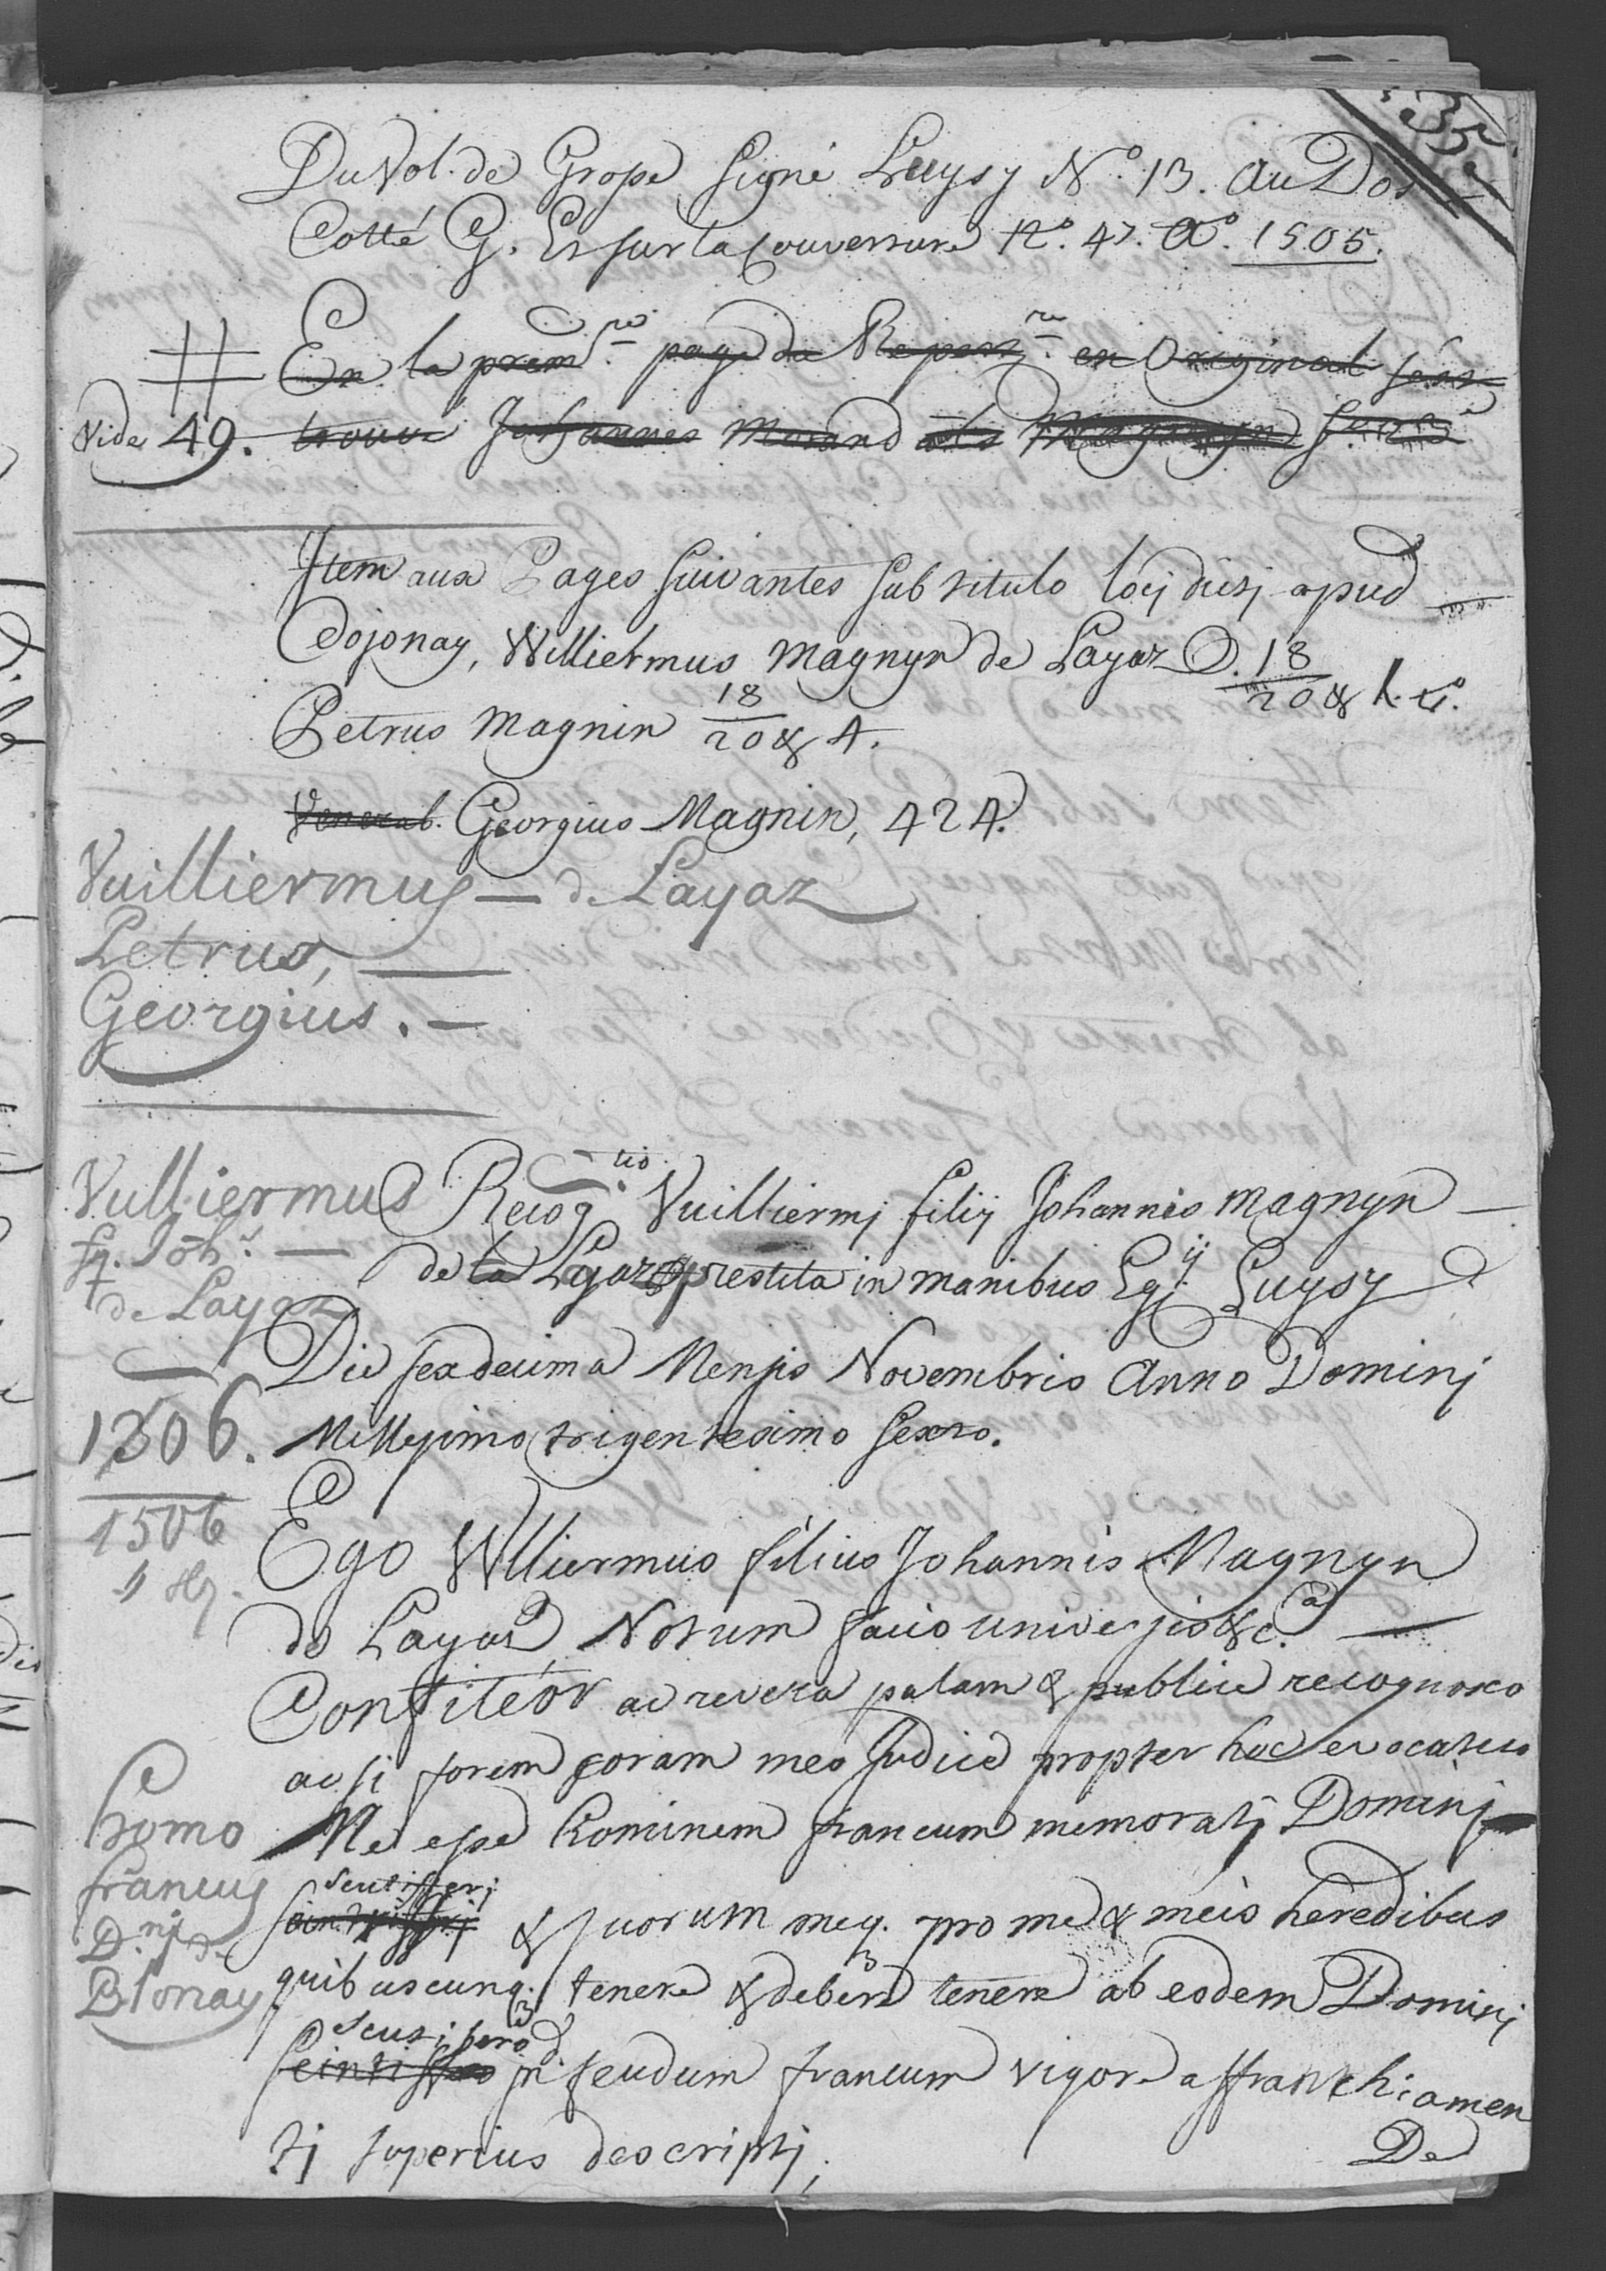 35
Du Vol. de Grosse signé Luysy N.º 13. au Dos
Cotté G. Et sur la Couverture N.º 47. Aº. 1505.
En la prem.re page du Repert.re en Original sést
Vide 49. trouvé Johannes Morand als Magnyn fº
Item aux Pages suivantes sub titulo locj dictj apud
Cojonay, Williermus Magnyn de Layaz 18
20 &
Petrus Magnin 18
20 & 4.
Venerab. Georgius Magnin, 424.
Vuilliermus — de Layaz
Petrus, —
Georgius. —
Vulliermus
fq. Joh.s —
de Layaz
Recog.tio Vuilliermj filij Johannis Magnyn —
de la Layaz prestita in manibus Egij Luysy
Die sexdecima Mensis Novembris Anno Dominj
1306. Millesimo trigentesimo sexto.
1506
Ego Williermus filius Johannis Magnyn
de Layaz, Notum facio universis &c.a —
Confiteor ac revera palam & publice recognosco
ac si forem coram meo Judice propter hoc evocatus
Homo
francus
D.nj de
Blonay
Me esse hominem francum memoratj Dominj
scutifferj
& suorum meq. pro me & meis heredibus
quibuscunq. tenere & debere tenere ab eodem Dominj
scutifero
in feudum francum vigore affranchiamen
tj superius descriptj;
De